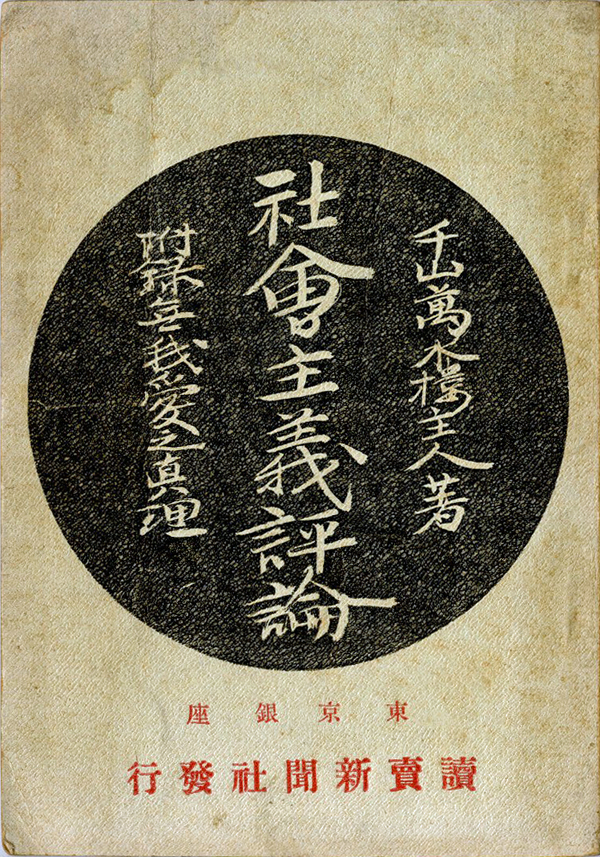 千山萬水樓主人著
社會主義評論
附錄無我愛之真理
東京銀座
讀賣新聞社發行